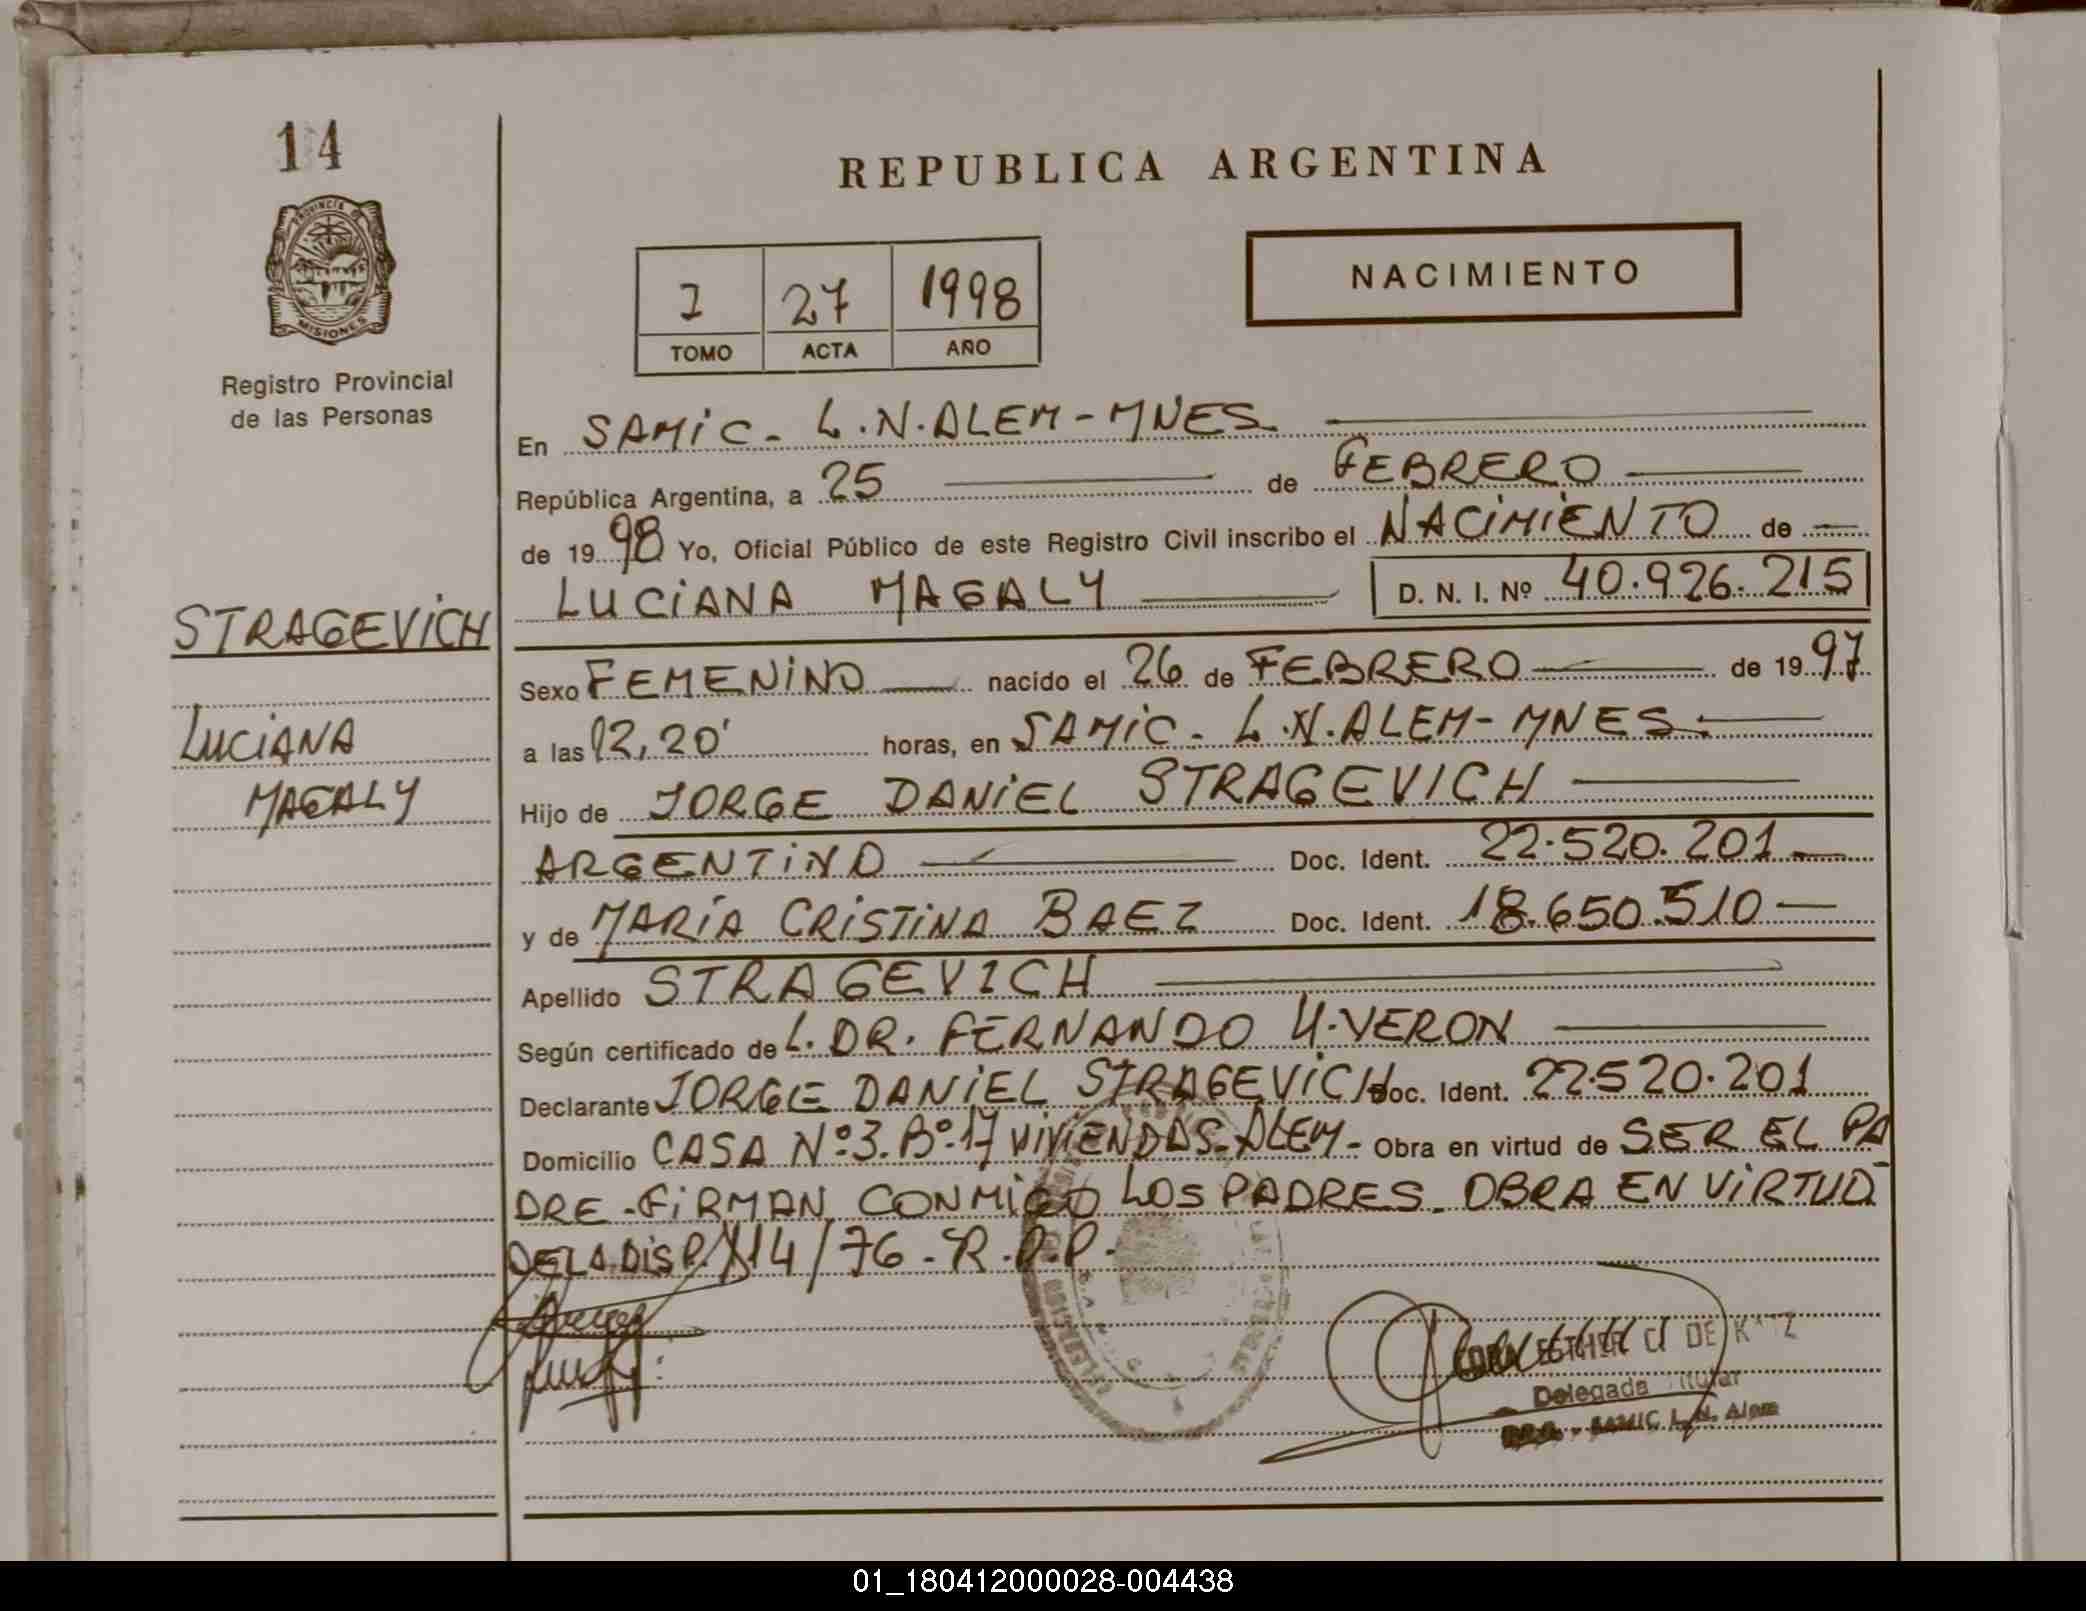 14
PROVINCIA DE
MISIONES
Registro Provincial
de las Personas
STRAGEVICH
LUCIANA
MAGALY
REPUBLICA ARGENTINA
I 27 1998
TOMO ACTA AÑO
NACIMIENTO
En SAMIC. L.N.ALEM-MNES.
República Argentina, a 25 de FEBRERO
de 19 98 Yo, Oficial Público de este Registro Civil inscribo el NACIMIENTO de
LUCIANA MAGALY D. N. I. Nº 40.926.215
Sexo FEMENINO nacido el 26 de FEBRERO de 19 97
a las 12,20' horas, en SAMIC. L.N.ALEM-MNES.
Hijo de JORGE DANIEL STRAGEVICH
ARGENTINO Doc. Ident. 22.520.201
y de MARIA CRISTINA BAEZ Doc. Ident. 18.650.510
Apellido STRAGEVICH
Según certificado de L. DR. FERNANDO H. VERON
Declarante JORGE DANIEL STRAGEVICH Doc. Ident. 22.520.201
Domicilio CASA Nº3. Bº.17 VIVIENDAS. ALEM. Obra en virtud de SER EL PA
DRE - FIRMAN CONMIGO LOS PADRES. OBRA EN VIRTUD
DE LA DISP. 114/76 - R.P.P.
ESTHER DE
Delegada Titular
SAMIC L. N. Alem
01_180412000028-004438